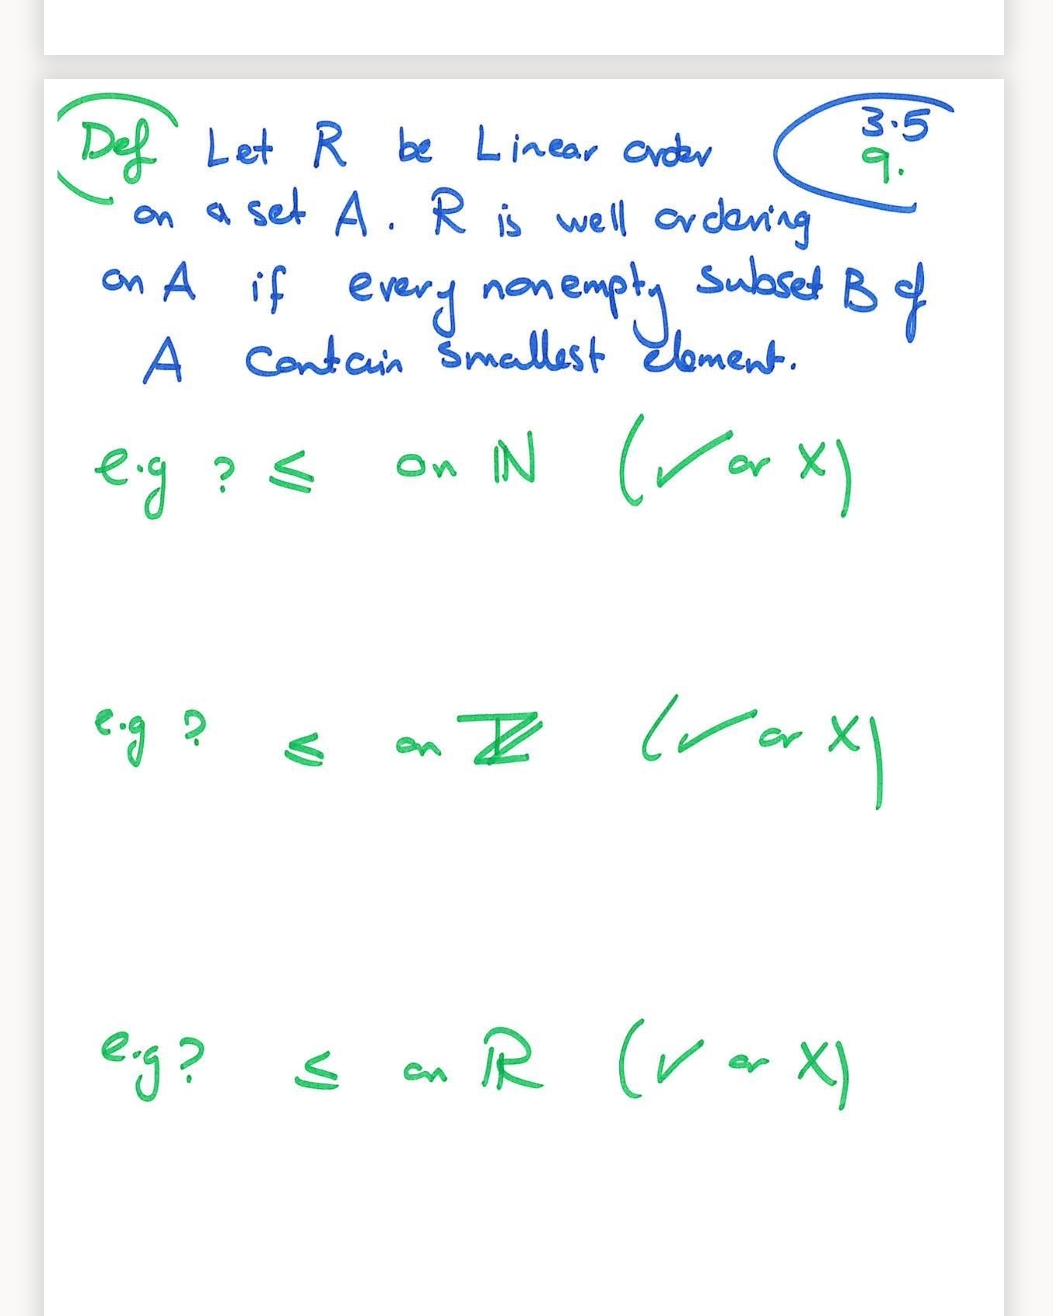 Def Let R be Linear order
3.5
9.
on a set A. R is well ordering
on A if every nonempty subset B of
A contain smallest element.
e.g ? ≤ on ℕ (✓ or X)
e.g ? ≤ on ℤ (✓ or X)
e.g ? ≤ on ℝ (✓ or X)